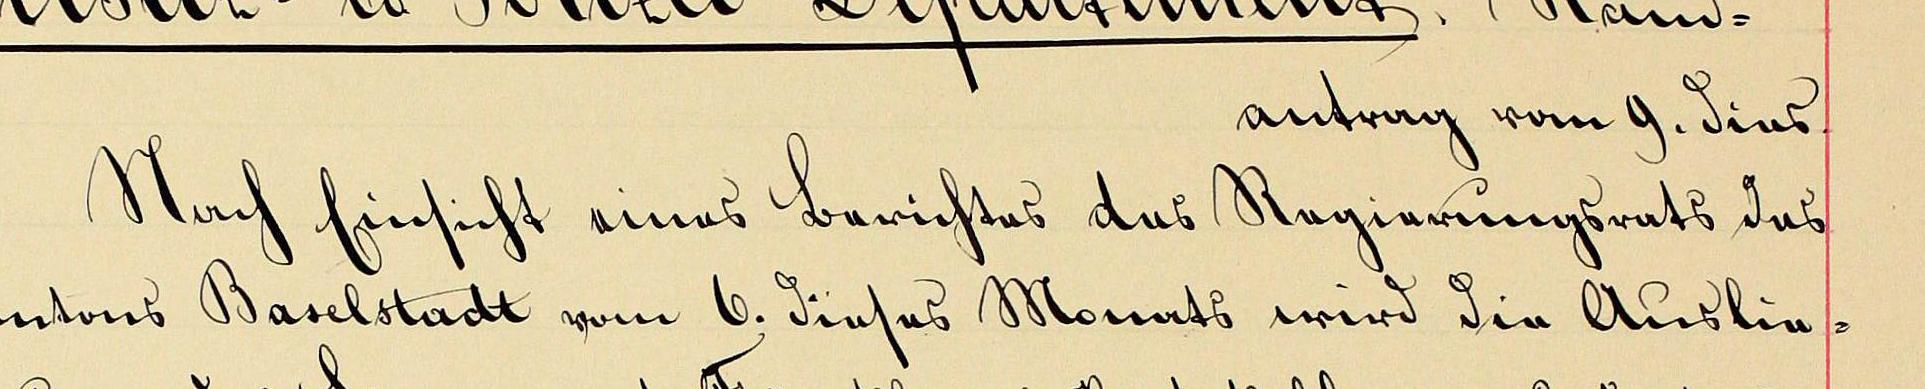 Justiz- & Polizei Departement. Rand=
antrag vom 9. dies.
Nach Einsicht eines Berichtes des Regierungsrats des
ntons Baselstadt vom 6. dieses Monats wird die Auslie=